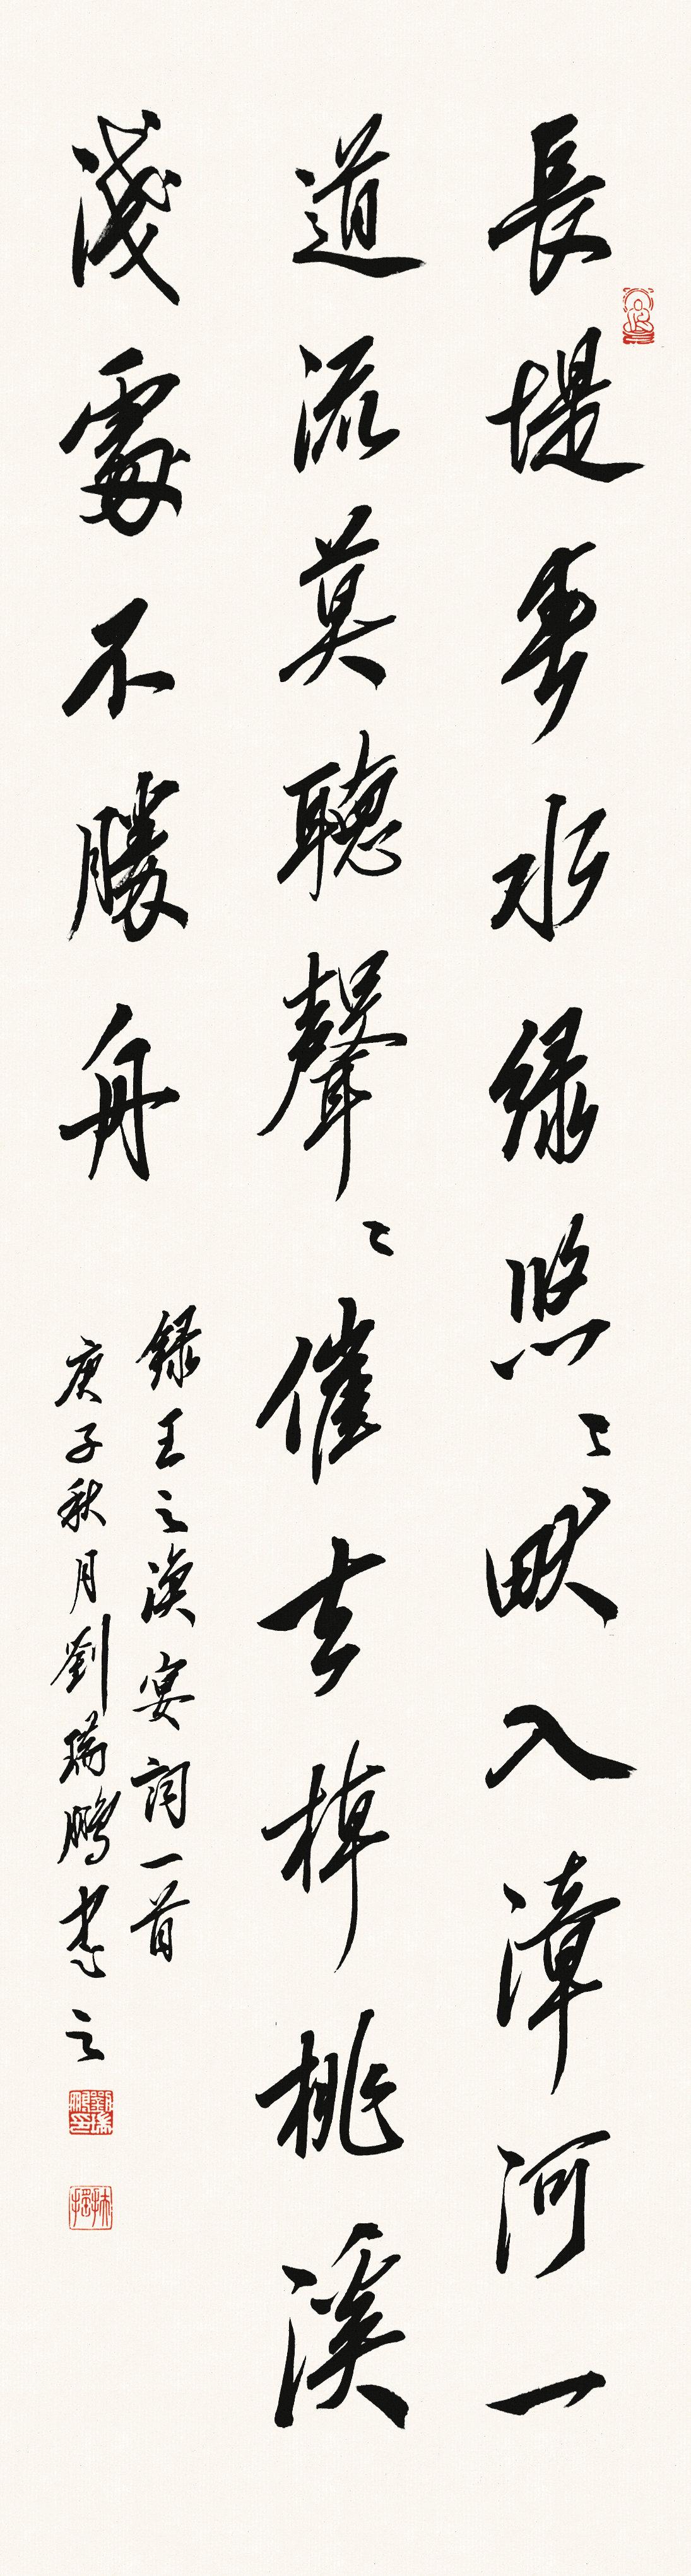 長堤春水綠悠〻畎入漳河一
道流莫聽聲〻催去棹桃溪
淺處不勝舟
録王之渙宴詞一首
庚子秋月劉瑞鵬書之
劉瑞鵬印